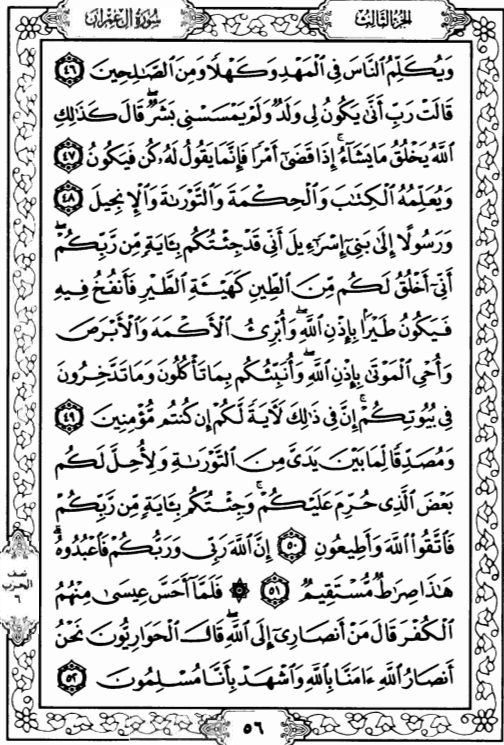 سُورَةُ آلِ عِمْرَانَ
الجُزْءُ الثَّالِثُ
وَيُكَلِّمُ النَّاسَ فِي الْمَهْدِ وَكَهْلًا وَمِنَ الصَّٰلِحِينَ ٤٦
قَالَتْ رَبِّ أَنَّىٰ يَكُونُ لِي وَلَدٌ وَلَمْ يَمْسَسْنِي بَشَرٌ ۖ قَالَ كَذَٰلِكِ
اللَّهُ يَخْلُقُ مَا يَشَآءُ ۚ إِذَا قَضَىٰٓ أَمْرًا فَإِنَّمَا يَقُولُ لَهُۥ كُن فَيَكُونُ ٤٧
وَيُعَلِّمُهُ الْكِتَٰبَ وَالْحِكْمَةَ وَالتَّوْرَىٰةَ وَالْإِنجِيلَ ٤٨
وَرَسُولًا إِلَىٰ بَنِيٓ إِسْرَٰٓءِيلَ أَنِّي قَدْ جِئْتُكُم بِـَٔايَةٍ مِّن رَّبِّكُمْ ۖ
أَنِّيٓ أَخْلُقُ لَكُم مِّنَ الطِّينِ كَهَيْـَٔةِ الطَّيْرِ فَأَنفُخُ فِيهِ
فَيَكُونُ طَيْرًۢا بِإِذْنِ اللَّهِ ۖ وَأُبْرِئُ الْأَكْمَهَ وَالْأَبْرَصَ
وَأُحْيِ الْمَوْتَىٰ بِإِذْنِ اللَّهِ ۖ وَأُنَبِّئُكُم بِمَا تَأْكُلُونَ وَمَا تَدَّخِرُونَ
فِي بُيُوتِكُمْ ۚ إِنَّ فِي ذَٰلِكَ لَـَٔايَةً لَّكُمْ إِن كُنتُم مُّؤْمِنِينَ ٤٩
وَمُصَدِّقًا لِّمَا بَيْنَ يَدَيَّ مِنَ التَّوْرَىٰةِ وَلِأُحِلَّ لَكُم
بَعْضَ الَّذِي حُرِّمَ عَلَيْكُمْ ۚ وَجِئْتُكُم بِـَٔايَةٍ مِّن رَّبِّكُمْ
فَاتَّقُوا اللَّهَ وَأَطِيعُونِ ٥٠ إِنَّ اللَّهَ رَبِّي وَرَبُّكُمْ فَاعْبُدُوهُ ۗ
هَٰذَا صِرَٰطٌ مُّسْتَقِيمٌ ٥١ ۞ فَلَمَّآ أَحَسَّ عِيسَىٰ مِنْهُمُ
الْكُفْرَ قَالَ مَنْ أَنصَارِيٓ إِلَى اللَّهِ ۖ قَالَ الْحَوَارِيُّونَ نَحْنُ
أَنصَارُ اللَّهِ ءَامَنَّا بِاللَّهِ وَاشْهَدْ بِأَنَّا مُسْلِمُونَ ٥٢
نصف
الحزب
٦
٥٦